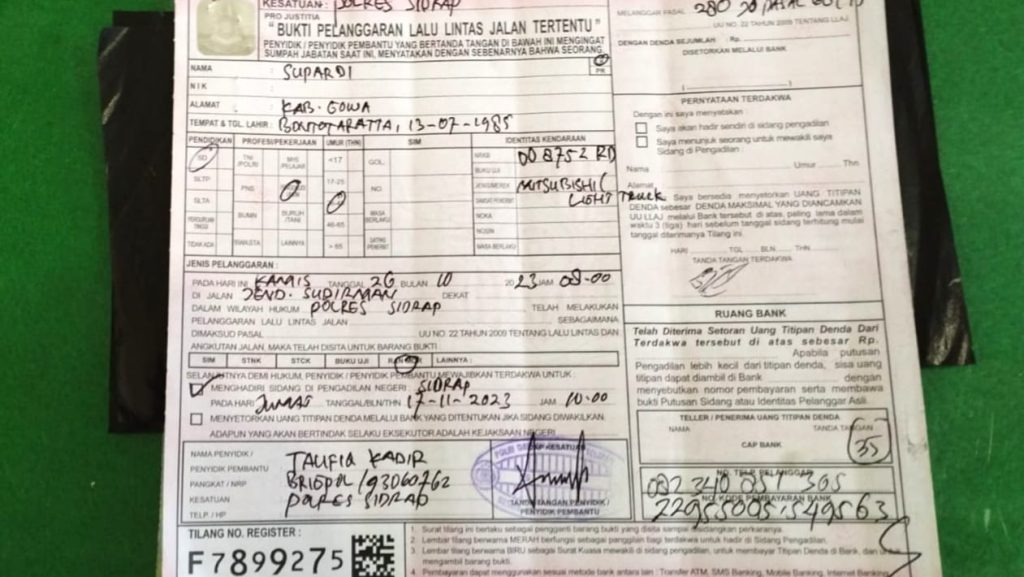 KESATUAN : POLRES SIDRAP
PRO JUSTITIA
"BUKTI PELANGGARAN LALU LINTAS JALAN TERTENTU"
PENYIDIK / PENYIDIK PEMBANTU YANG BERTANDA TANGAN DI BAWAH INI MENGINGAT
SUMPAH JABATAN SAAT INI, MENYATAKAN DENGAN SEBENARNYA BAHWA SEORANG,
NAMA : SUPARDI
PR
NIK :
ALAMAT : KAB. GOWA
TEMPAT & TGL. LAHIR : BONTOTARATTA, 13-07-1985
PENDIDIKAN PROFESI/PEKERJAAN UMUR (THN) SIM IDENTITAS KENDARAAN
SD TNI/POLRI MHS/PELAJAR <17 GOL. NRKB DD 8752 RD
BUKU UJI
SLTP 17-25 JENIS/MEREK MITSUBISHI (
LIGHT TRUCK
SLTA PNS NO. NOKA
BUMN BURUH/TANI 46-65 MASA BERLAKU NOSIN
TIDAK ADA SWASTA LAINNYA > 65 SATPAS PENERBIT MASA BERLAKU
JENIS PELANGGARAN :
PADA HARI INI KAMIS TANGGAL 26 BULAN 10 2023 JAM 08-00
DI JALAN JEND. SUDIRMAN DEKAT
DALAM WILAYAH HUKUM POLRES SIDRAP TELAH MELAKUKAN
PELANGGARAN LALU LINTAS JALAN SEBAGAIMANA
DIMAKSUD PASAL UU NO. 22 TAHUN 2009 TENTANG LALU LINTAS DAN
ANGKUTAN JALAN, MAKA TELAH DISITA UNTUK BARANG BUKTI
SIM STNK STCK BUKU UJI LAINNYA :
SELANJUTNYA DEMI HUKUM, PENYIDIK / PENYIDIK PEMBANTU MEWAJIBKAN TERDAKWA UNTUK :
MENGHADIRI SIDANG DI PENGADILAN NEGERI SIDRAP
PADA HARI JUMAT TANGGAL/BLN/THN 17-11-2023 JAM 10-00
MENYETORKAN UANG TITIPAN DENDA MELALUI BANK YANG DITENTUKAN JIKA SIDANG DIWAKILKAN.
ADAPUN YANG AKAN BERTINDAK SELAKU EKSEKUTOR ADALAH KEJAKSAAN NEGERI
NAMA PENYIDIK /
PENYIDIK PEMBANTU TAUFIQ KADIR
PANGKAT / NRP BRIGPOL /93060762
KESATUAN POLRES SIDRAP
TELP. / HP
TANDA TANGAN PENYIDIK /
PENYIDIK PEMBANTU
TILANG NO. REGISTER :
F7899275
MELANGGAR PASAL
UU NO. 22 TAHUN 2009 TENTANG LLAJ
DENGAN DENDA SEJUMLAH : Rp.
DISETORKAN MELALUI BANK
PERNYATAAN TERDAKWA
Dengan ini saya menyatakan :
Saya akan hadir sendiri di sidang pengadilan
Saya menunjuk seorang untuk mewakili saya
Sidang di Pengadilan :
Nama Umur Thn
Alamat
Saya bersedia menyetorkan UANG TITIPAN
DENDA sebesar DENDA MAKSIMAL YANG DIANCAMKAN
UU LLAJ melalui Bank tersebut di atas, paling lama dalam
waktu 3 (tiga) hari sebelum tanggal sidang terhitung mulai
tanggal diterimanya Tilang ini.
HARI TGL BLN THN.
TANDA TANGAN TERDAKWA
RUANG BANK
Telah Diterima Setoran Uang Titipan Denda Dari
Terdakwa tersebut di atas sebesar Rp.
Apabila putusan
Pengadilan lebih kecil dari titipan denda, sisa
uang titipan dapat diambil di Bank dengan
menyebutkan nomor pembayaran serta membawa
bukti Putusan Sidang atau Identitas Pelanggar Asli.
TELLER / PENERIMA UANG TITIPAN DENDA
NAMA TANDA TANGAN
CAP BANK
35
NO. TELP PELANGGAR
082 340 851 305
NO. KODE PEMBAYARAN BANK
22955005.549563
1. Surat tilang ini berlaku sebagai pengganti barang bukti yang disita sampai disidangkan perkaranya.
2. Lembar tilang berwarna MERAH berfungsi sebagai panggilan bagi terdakwa untuk hadir di Sidang Pengadilan.
3. Lembar tilang berwarna BIRU sebagai Surat Kuasa mewakili di sidang pengadilan, untuk membayar Titipan Denda di Bank, dan
mengambil barang bukti.
4. Pembayaran dapat menggunakan sesuai metode bank antara lain : Transfer ATM, SMS Banking, Mobile Banking, Internet Banking